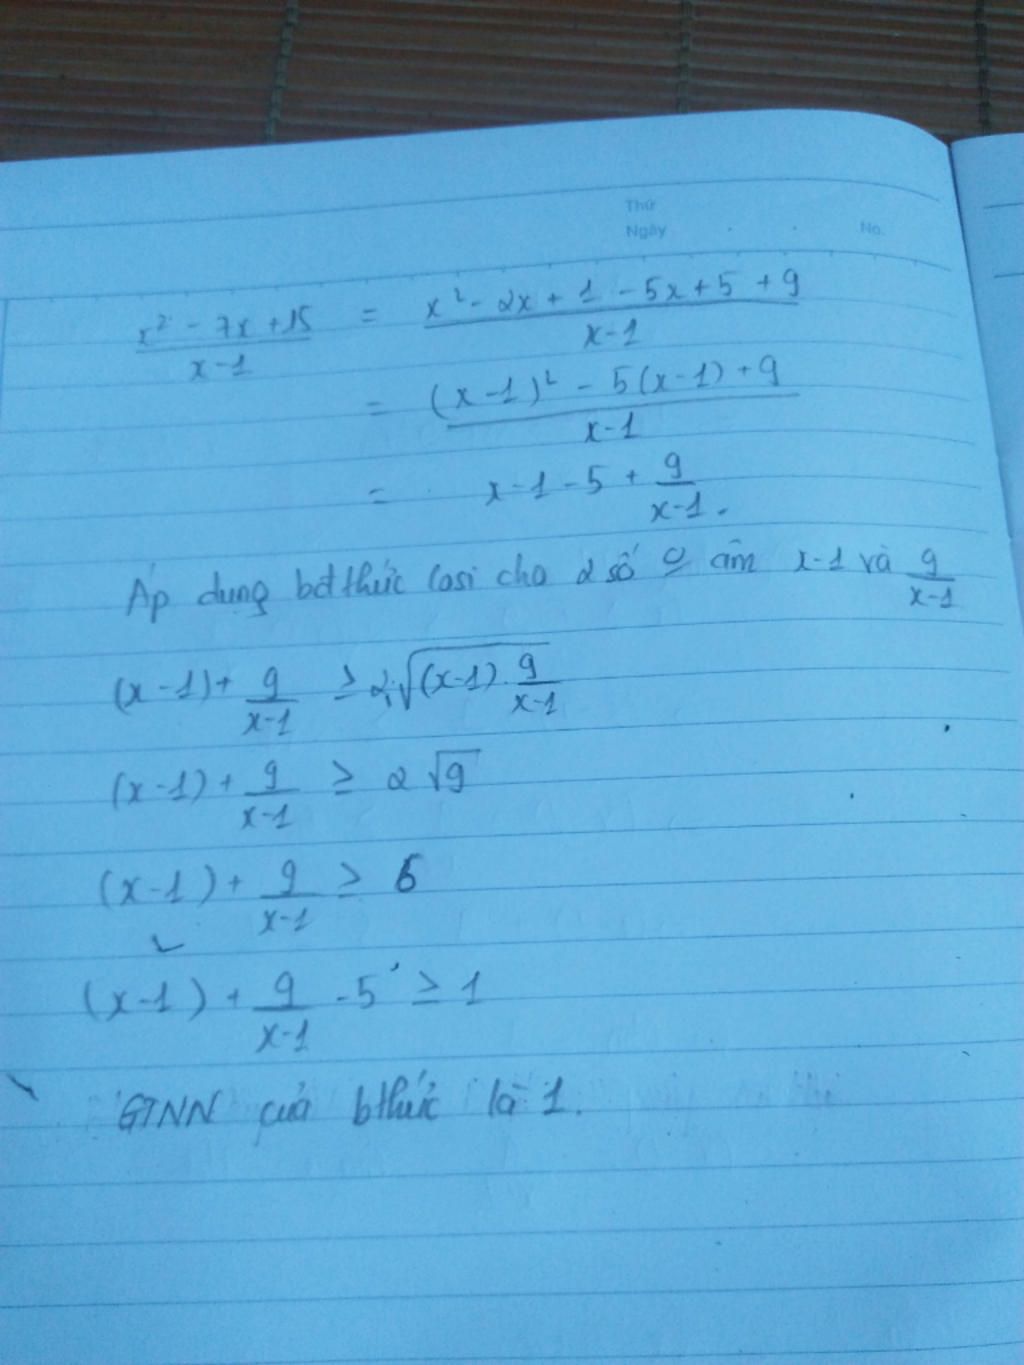 Thứ
Ngày No.
x² - 7x + 15 / x - 1 = x² - 2x + 1 - 5x + 5 + 9 / x - 1
= (x - 1)² - 5(x - 1) + 9 / x - 1
= x - 1 - 5 + 9 / x - 1 .
Áp dụng bđthức Cosi cho 2 số âm x - 1 và 9 / x - 1
(x - 1) + 9 / x - 1 ≥ 2.√(x - 1) . 9 / x - 1
(x - 1) + 9 / x - 1 ≥ 2 √9
(x - 1) + 9 / x - 1 ≥ 6
(x - 1) + 9 / x - 1 - 5 ≥ 1
GTNN của bthức là 1.